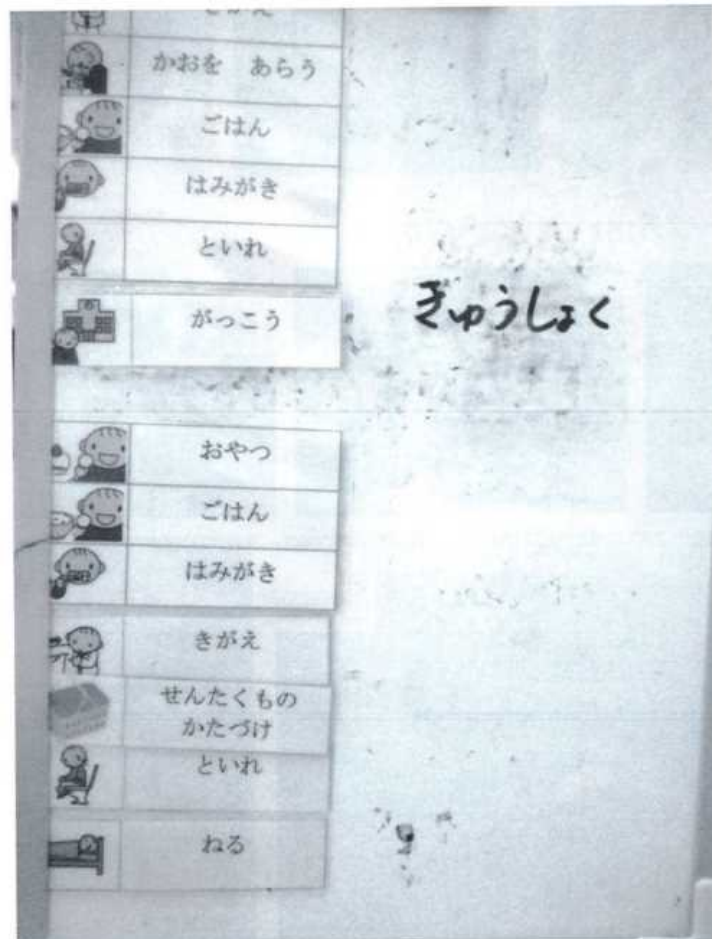 きがえ
かおを　あらう
ごはん
はみがき
といれ
がっこう
ぎゅうしょく
おやつ
ごはん
はみがき
きがえ
せんたくもの
かたづけ
といれ
ねる